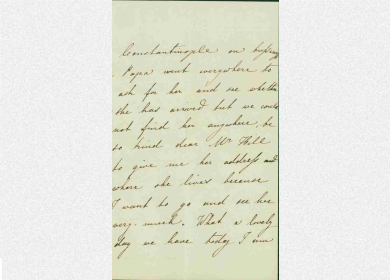 Constantinople on
Papa went everywhere to
ask for her and see whether
she has arrived but we could
not find her anywhere, be
so kind dear Mr Hill
to give me her address and
where she lives because
I want to go and see her
very much. What a lovely
day we have today I am